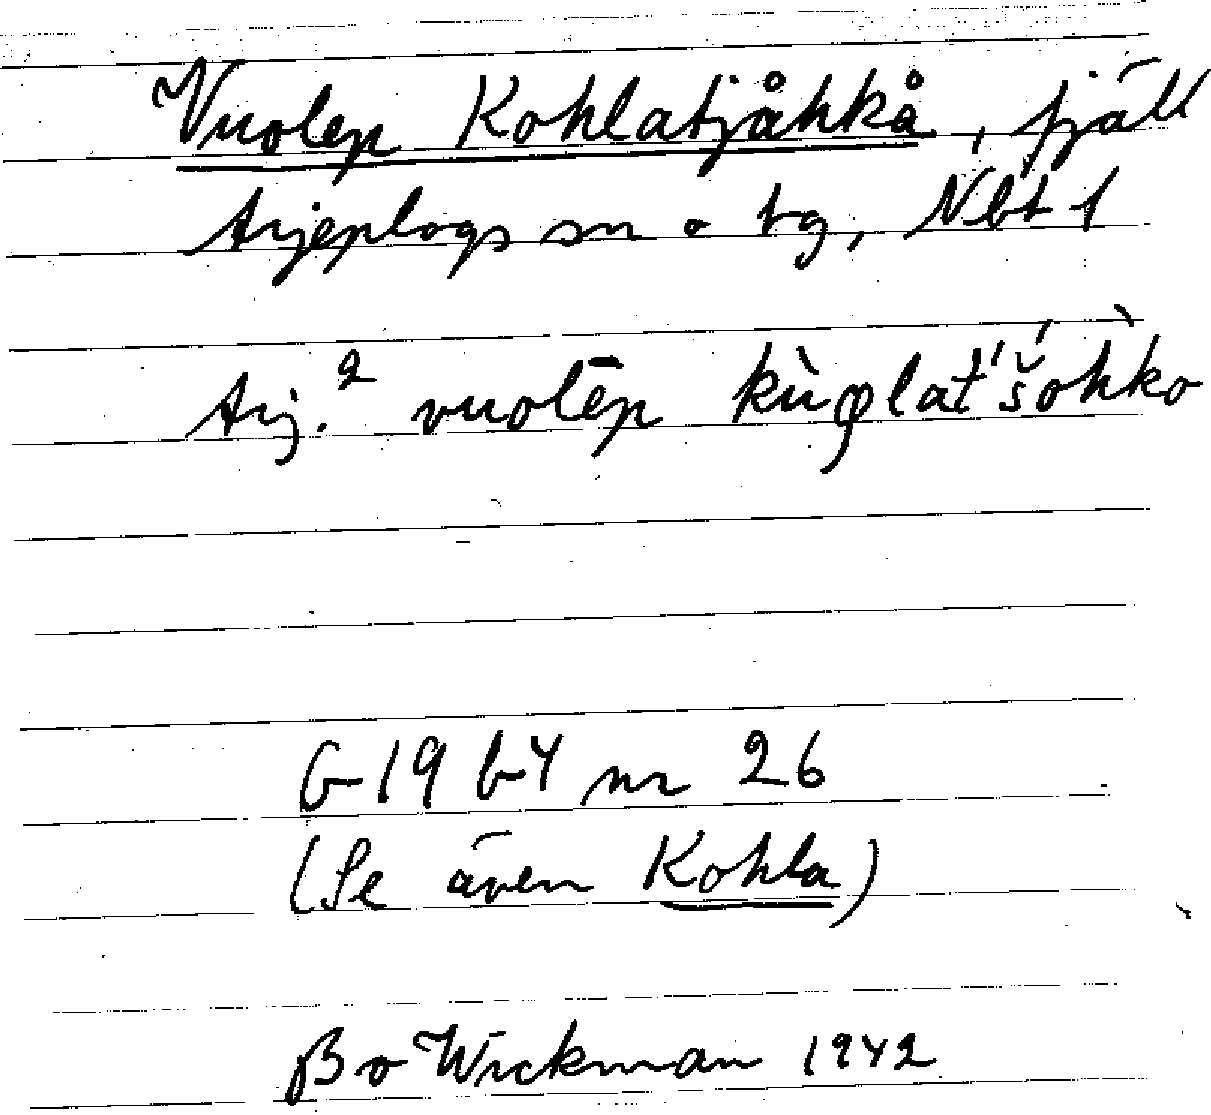 Vuolep Kohlatjåhkå, fjäll
Arjeplogs sn o tg, Nbt l
Arj.² vuolēp kùφlat'šohko
G 19 b 4 nr 26
(Se även Kohla)
Bo Wickman 1942